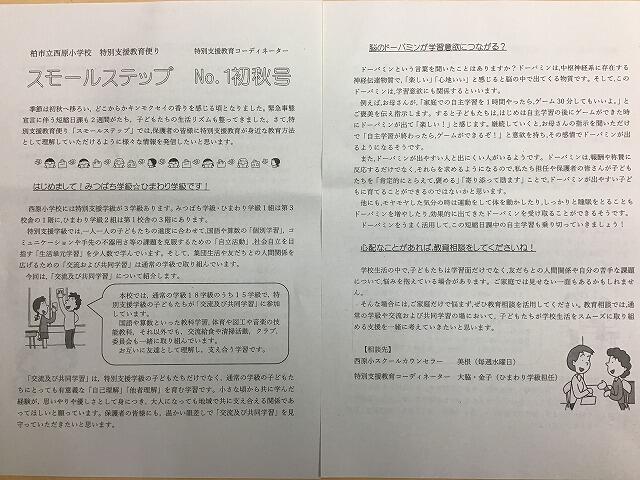 柏市立西原小学校　特別支援教育便り　　特別支援教育コーディネーター
スモールステップ　No.1初秋号
季節は初秋へ移ろい、どこからかキンモクセイの香りを感じる頃となりました。緊急事態
宣言に伴う短縮日課も２週間がたち、子どもたちの生活リズムも整ってきました。さて、特
別支援教育便り「スモールステップ」では、保護者の皆様に特別支援教育が身近な教育方法
として理解していただけるように様々な情報を発信したいと思います。
はじめまして！みつばち学級☆ひまわり学級です！
西原小学校には特別支援学級が３学級あります。みつばち学級・ひまわり学級１組は第３
校舎の１階に、ひまわり学級２組は第１校舎の３階にあります。
特別支援学級では、一人一人の子どもたちの進度に合わせて、国語や算数の「個別学習」、コ
ミュニケーションや手先の不器用さ等の課題を克服するための「自立活動」、社会自立を目
指す「生活単元学習」を少人数で学んでいます。そして、集団生活や友だちとの人間関係を
広げるための「交流および共同学習」は通常の学級で取り組んでいます。
今回は、「交流及び共同学習」について紹介します。
本校では、通常の学級１８学級のうち１５学級で、特別支援
学級の子どもたちが「交流及び共同学習」に参加
しています。
国語や算数といった教科学習、体育や図工や音楽の技
能教科、それ以外でも、交流給食や清掃活動、クラブ、
委員会も一緒に取り組んでいます。
お互いに友達として理解し、支え合う学習です。
「交流及び共同学習」は、特別支援学級の子どもたちだけでなく、通常の学級の子どもた
ちにとっても有意義な「自己理解」「他者理解」を育む学習です。小さな頃から共に学んだ
経験が、思いやりや優しさとして身につき、大人になっても地域で共に支え合える関係であ
ってほしいと願っています。保護者の皆様にも、温かい眼差しで「交流及び共同学習」を見
守っていただきたいと思います。
脳のドーパミンが学習意欲につながる？
ドーパミンという言葉を聞いたことはありますか？ドーパミンは、中枢神経系に存在する
神経伝達物質で、「楽しい」「心地いい」と感じると脳の中で出てくる物質です。そして、この
ドーパミンは、学習意欲にも関係するといいます。
例えば、お母さんが、「家庭での自主学習を１時間やったら、ゲーム30分してもいいよ。」と
ご褒美を伝え指示します。すると子どもたちは、はじめは自主学習の後にゲームができた時
にドーパミンが出て「楽しい！」と感じます。継続していくと、お母さんの指示を聞いただけ
で「自主学習が終わったら、ゲームができるぞ！」と意欲を持ち、その感情でドーパミンが出
るようになるそうです。
また、ドーパミンが出やすい人と出にくい人がいるようです。ドーパミンは、報酬や称賛に
反応するだけでなく、それらを求めるようになるので、私たち担任や保護者の皆さんが子ども
たちを「肯定的にとらえて、褒める」「寄り添って励ます」ことで、ドーパミンが出やすい子ども
に育てることができるのではないかと思います。
他にも、モヤモヤした気分の時は運動をして体を動かしたり、しっかりと睡眠をとることも
ドーパミンを増やしたり、効果的に出てきたドーパミンを受け取ることができるそうです。
ドーパミンをうまく活用して、この短縮日課中の自主学習も乗り切っていきましょう！
心配なことがあれば、教育相談をしてくださいね！
学校生活の中で、子どもたちは学習面だけでなく、友だちとの人間関係や自分の苦手な課題
について、悩みを抱えている場合があります。ご家庭では見せない一面もあるかもしれませ
ん。
そんな場合には、ご家庭だけで悩まず、ぜひ教育相談を活用してください。教育相談では、通
常の学級や交流及び共同学習の場において、子どもたちが学校生活をスムーズに取り組
める支援を一緒に考えていきたいと思います。
【相談先】
西原小スクールカウンセラー　美根（毎週水曜日）
特別支援教育コーディネーター　大脇・金子（ひまわり学級担任）